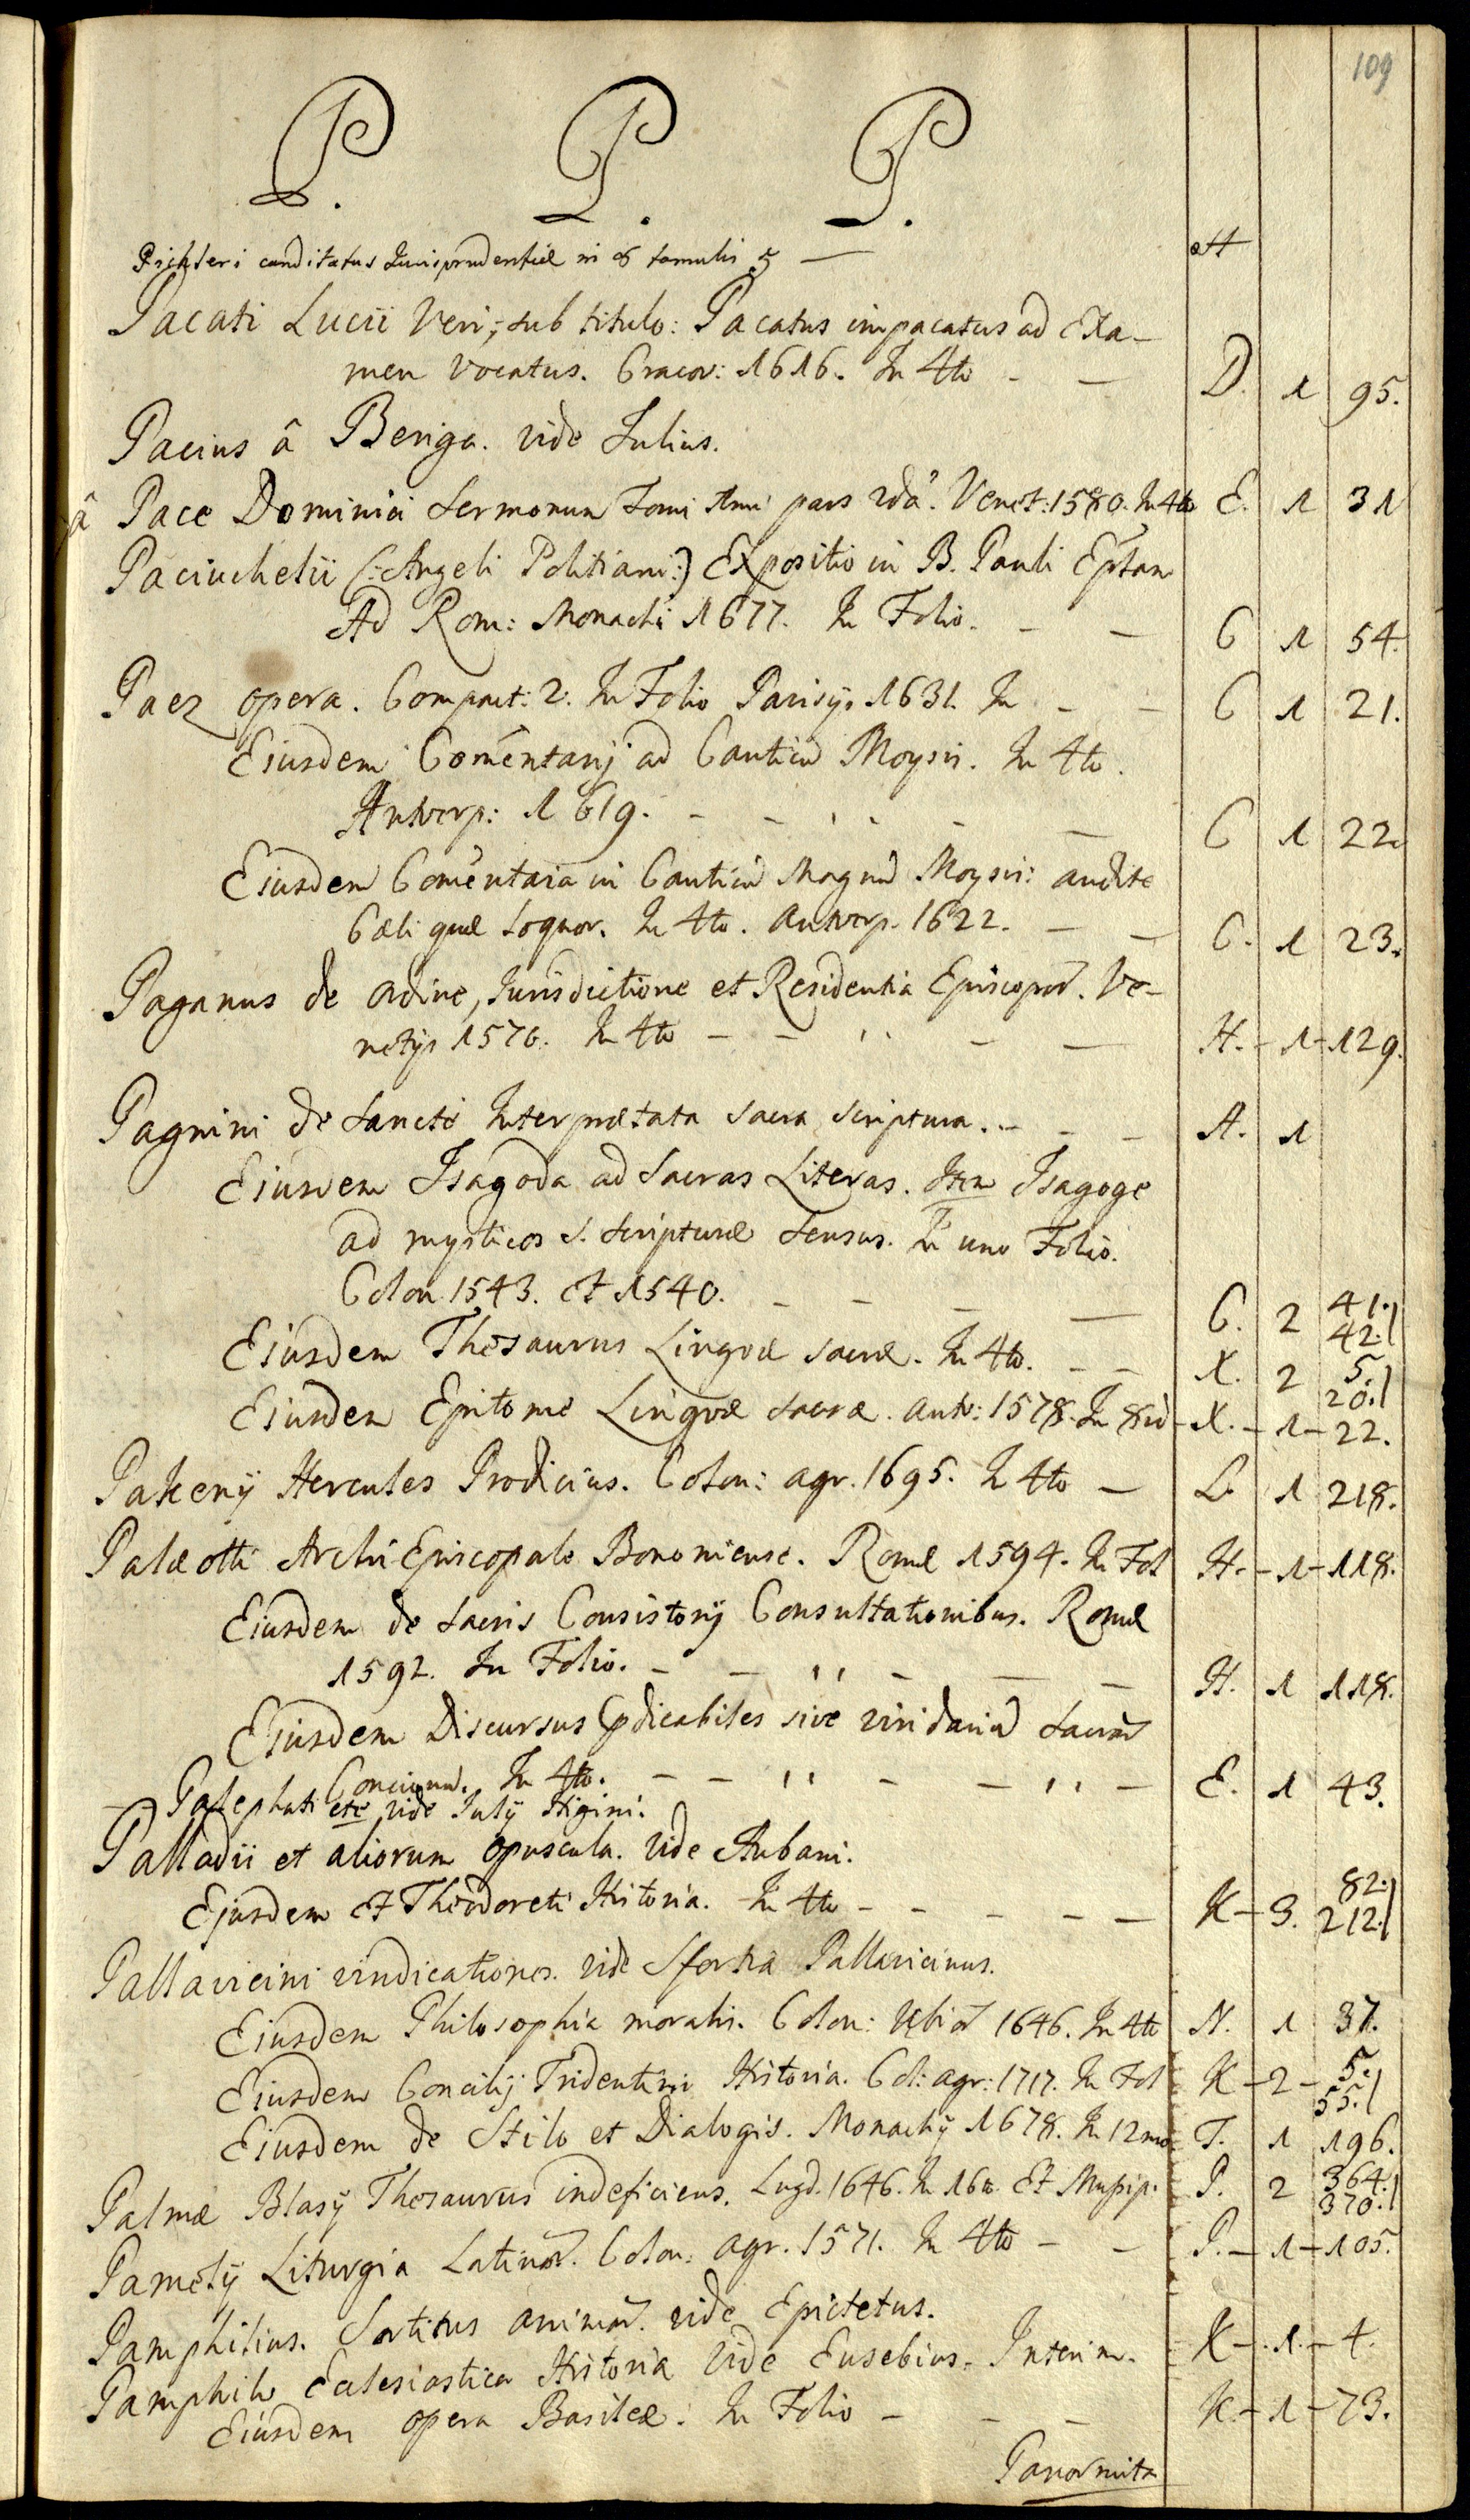 109
P. P. P.
Richteri canditatus Jurisprudentiæ in 8 tomulis 5 — H
Pacati Lucii Veri, sub titulo: Pacatus impacatus ad exa-
men vocatus. Cracov: 1616. In 4to - — D. 1 95.
Pacius â Beriga. vide Julius.
â Pace Dominici Sermonum Tomi 1mi pars 2da. Venet: 1580. In 4to E. 1 31
Paciuchelii (: Angeli Politiani :) Expositio in B. Pauli Eptam
Ad Rom: Monachi 1677. In Folio. - — C 1 54.
Paez opera. Compact: 2. In Folio Parisijs 1631. In - — C 1 21.
Eiusdem Comentarij ad Canticu Moysis. In 4to.
Antverp: 1619. - - - — C 1 22
Eiusdem Comentaria in Canticu Magnu Moysis: audite
Cæli quæ loquor. In 4to. Antverp. 1622. - — C. 1 23.
Paganus de ordine, Jurisdictione et Residentia Episcopor. Ve-
netijs 1570. In 4to - - - — H. - 1 - 129.
Pagnini de Sancte Interprætata Sacra Scriptura. - - - A. 1
Eiusdem Isagoda ad Sacras Literas. Item Isagoge
ad mysticos S. Scripturæ Sensus. In uno Folio.
Colon 1543. et 1540. - - - — C. 2 41. 42.
Eiusdem Thesaurus Lingvæ Sacræ. In 4to. - - X. 2 5. 20.
Eiusdem Epitome Lingvæ Sacræ. Antv: 1578. In 8vo - X. - 1 - 22.
Pakenij Hercules Prodicius. Colon: agr. 1695. In 4to — L. 1 218.
Palæotti Archi Episcopale Bononiense. Romæ 1594. In Fol H. - 1 - 118.
Eiusdem de Sacris Consistorij Consultationibus. Romæ
1592. In Folio. - - - — H. 1 118.
Eiusdem Discursus Pdicabiles sive viridariu Sacrar
Concionu. In 4to. - - - - - E. 1 43.
— Palephati etc vide Julij Higini.
Palladii et aliorum opuscula. Vide Albani.
Ejusdem et Theodoreti Historia. In 4to - - - - — K - 3. 82. 212.
Pallavicini vindicationes. vide Sfortia Pallavicinus.
Eiusdem Philosophia moralis. Colon: Ubior 1646. In 4to N. 1 37.
Eiusdem Concilij Tridentini Historia. Col: agr: 1717. In Fol K - 2 - 5. 55.
Eiusdem de Stilo et Dialogis. Monachij 1678. In 12mo T. 1 196.
Palmæ Blasij Thesaurus indeficiens. Lugd. 1646. In 16. Et Mussip. P. 2 364. 370.
Pamelij Liturgia Latinor. Colon: agr. 1571. In 4to - - P. - 1 - 105.
Pamphilius. Sortitus animar. vide Epictetus.
Pamphili Eclesiastica Historia Vide Eusebius. Interim. K - 1. - 4.
Eiusdem opera Basileæ. In Folio - - - K. - 1 - 73.
Panormita